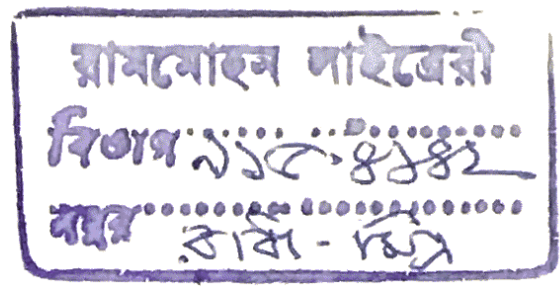 রামমোহন লাইব্রেরী
বিভাগ ৯১৫.৪১৪২
নম্বর রাধা - মিত্র